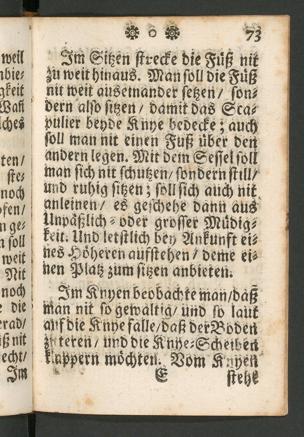 73
Im Sitzen strecke die Füß nit
zu weit hinaus. Man soll die Füß
nit weit auseinander setzen/ son-
dern also sitzen/ damit das Sca-
pulier beyde Knye bedecke; auch
soll man nit einen Fuß über den
andern legen. Mit dem Sessel soll
man sich nit schutzen/ sondern still/
und ruhig sitzen; soll sich auch nit
anleinen/ es geschehe dann aus
Unpäßlich- oder grosser Müdig-
keit. Und letstlich bey Ankunft ei-
nes Höheren aufstehen/ deme ei-
nen Platz zum sitzen anbieten.
Im Knyen beobachte man/ daß
man nit so gewaltig/ und so laut
auf die Knye falle/ daß der Boden
zitteren/ und die Knye-Scheiben
knappern möchten. Vom Knyen
E stehe